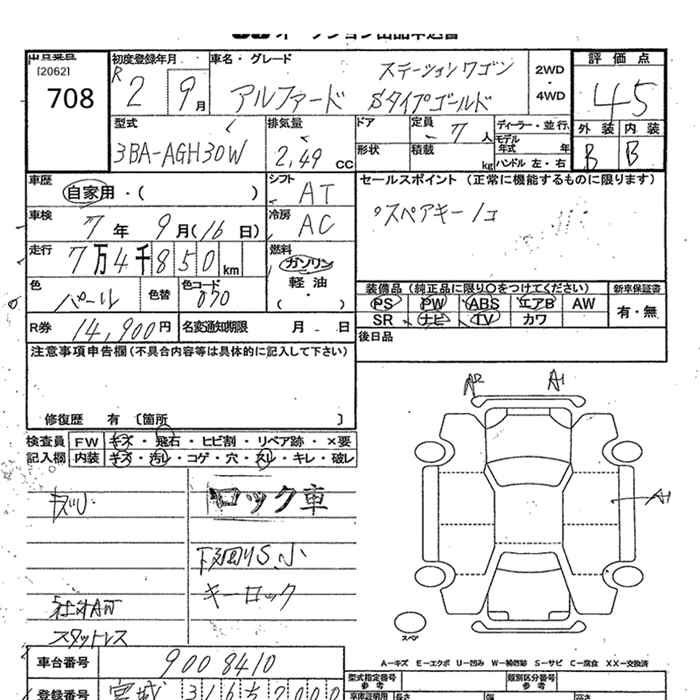 [2062]
708
初度登録年月
R 2 9月
車名・グレード
ステーションワゴン
アルファード Sタイプゴールド
2WD
・
4WD
評価点
45
外装 内装
B B
型式
3BA-AGH30W
排気量
2,49 CC
ドア
形状
定員 7人
積載 kg
ディーラー・並行
モデル年式 年
ハンドル 左・右
車歴
自家用・( )
シフト
AT
車検
7年 9月(16日)
冷房
AC
走行
7万4千850km
燃料
ガソリン
軽油
・
( )
色
パール
色替
色コード
070
R券 14,900円
名変通知期限 月 日
セールスポイント(正常に機能するものに限ります)
スペアキー1コ
装備品(純正品に限り○をつけてください)
PS PW ABS エアB AW
SR ナビ TV カワ
新車保証書
有・無
後日品
注意事項申告欄(不具合内容等は具体的に記入して下さい)
修復歴 有〔箇所 〕
検査員
記入欄
FW キズ・飛石・ヒビ割・リペア跡・×要
内装 キズ・汚レ・コゲ・穴・スレ・キレ・破レ
A2 A1
A1
キズ小
ロック車
下廻りS小
キーロック
社外AW
スタットレス
スペア
A-キズ E-エクボ U-凹み W-補修跡 S-サビ C-腐食 XX-交換済
車台番号 9008410
型式指定番号
参考
類別区分番号
参考
登録番号 宮城
長さ
幅
高さ